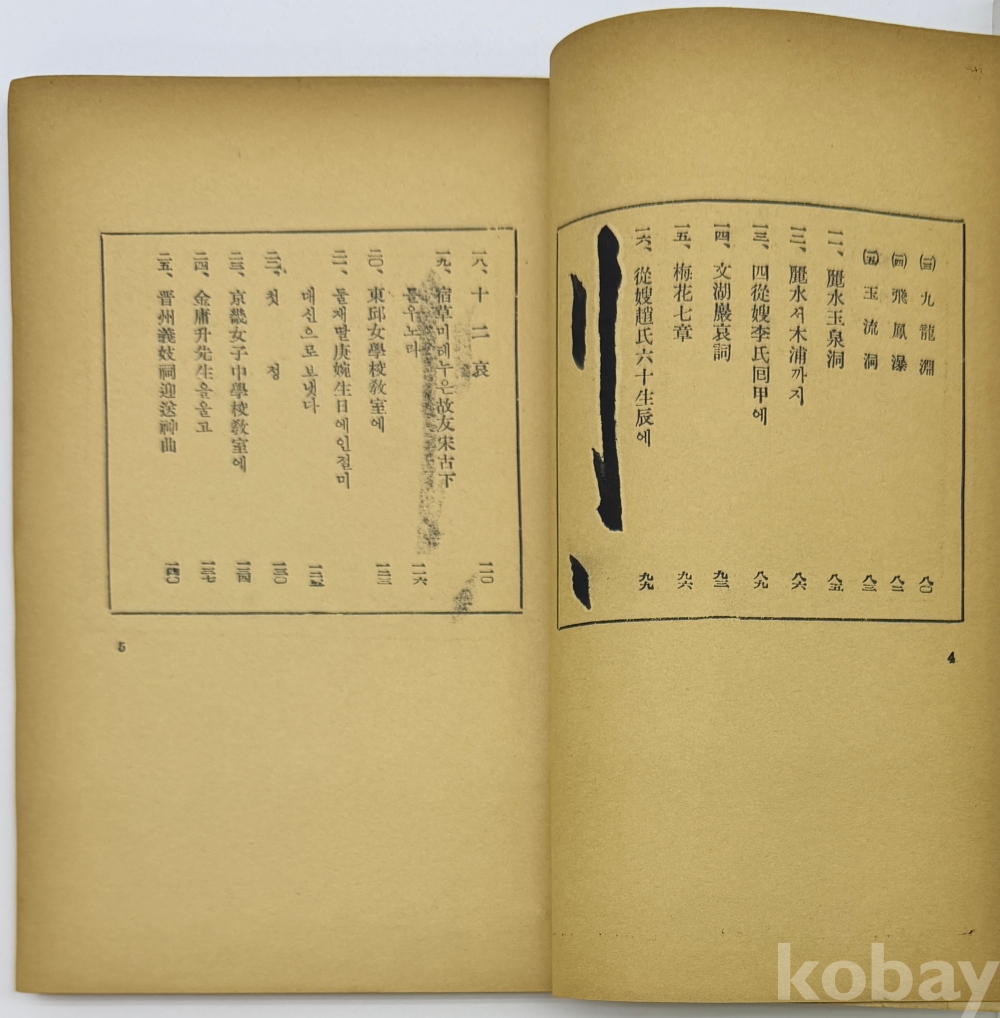 (一三) 九龍淵 八〇
(一四) 飛鳳瀑 八二
(一五) 玉流洞 八三
一一、麗水玉泉洞 八五
一二、麗水서木浦까지 八六
一三、四從嫂李氏回甲에 八九
一四、文湖巖哀詞 九三
一五、梅花七章 九六
一六、從嫂趙氏六十生辰에 九九
4
一八、十二哀 一一〇
一九、宿草미테누은故友宋古下
를우노라 一一六
二〇、東邱女學校敎室에 一二三
二一、둘재딸庚婉生日에인절미
대신으로보냇다 一二五
二二、첫정 一三〇
二三、京畿女子中學校敎室에 一三四
二四、金庸升先生을울고 一三七
二五、晋州義妓祠迎送神曲 一四〇
5
kobay